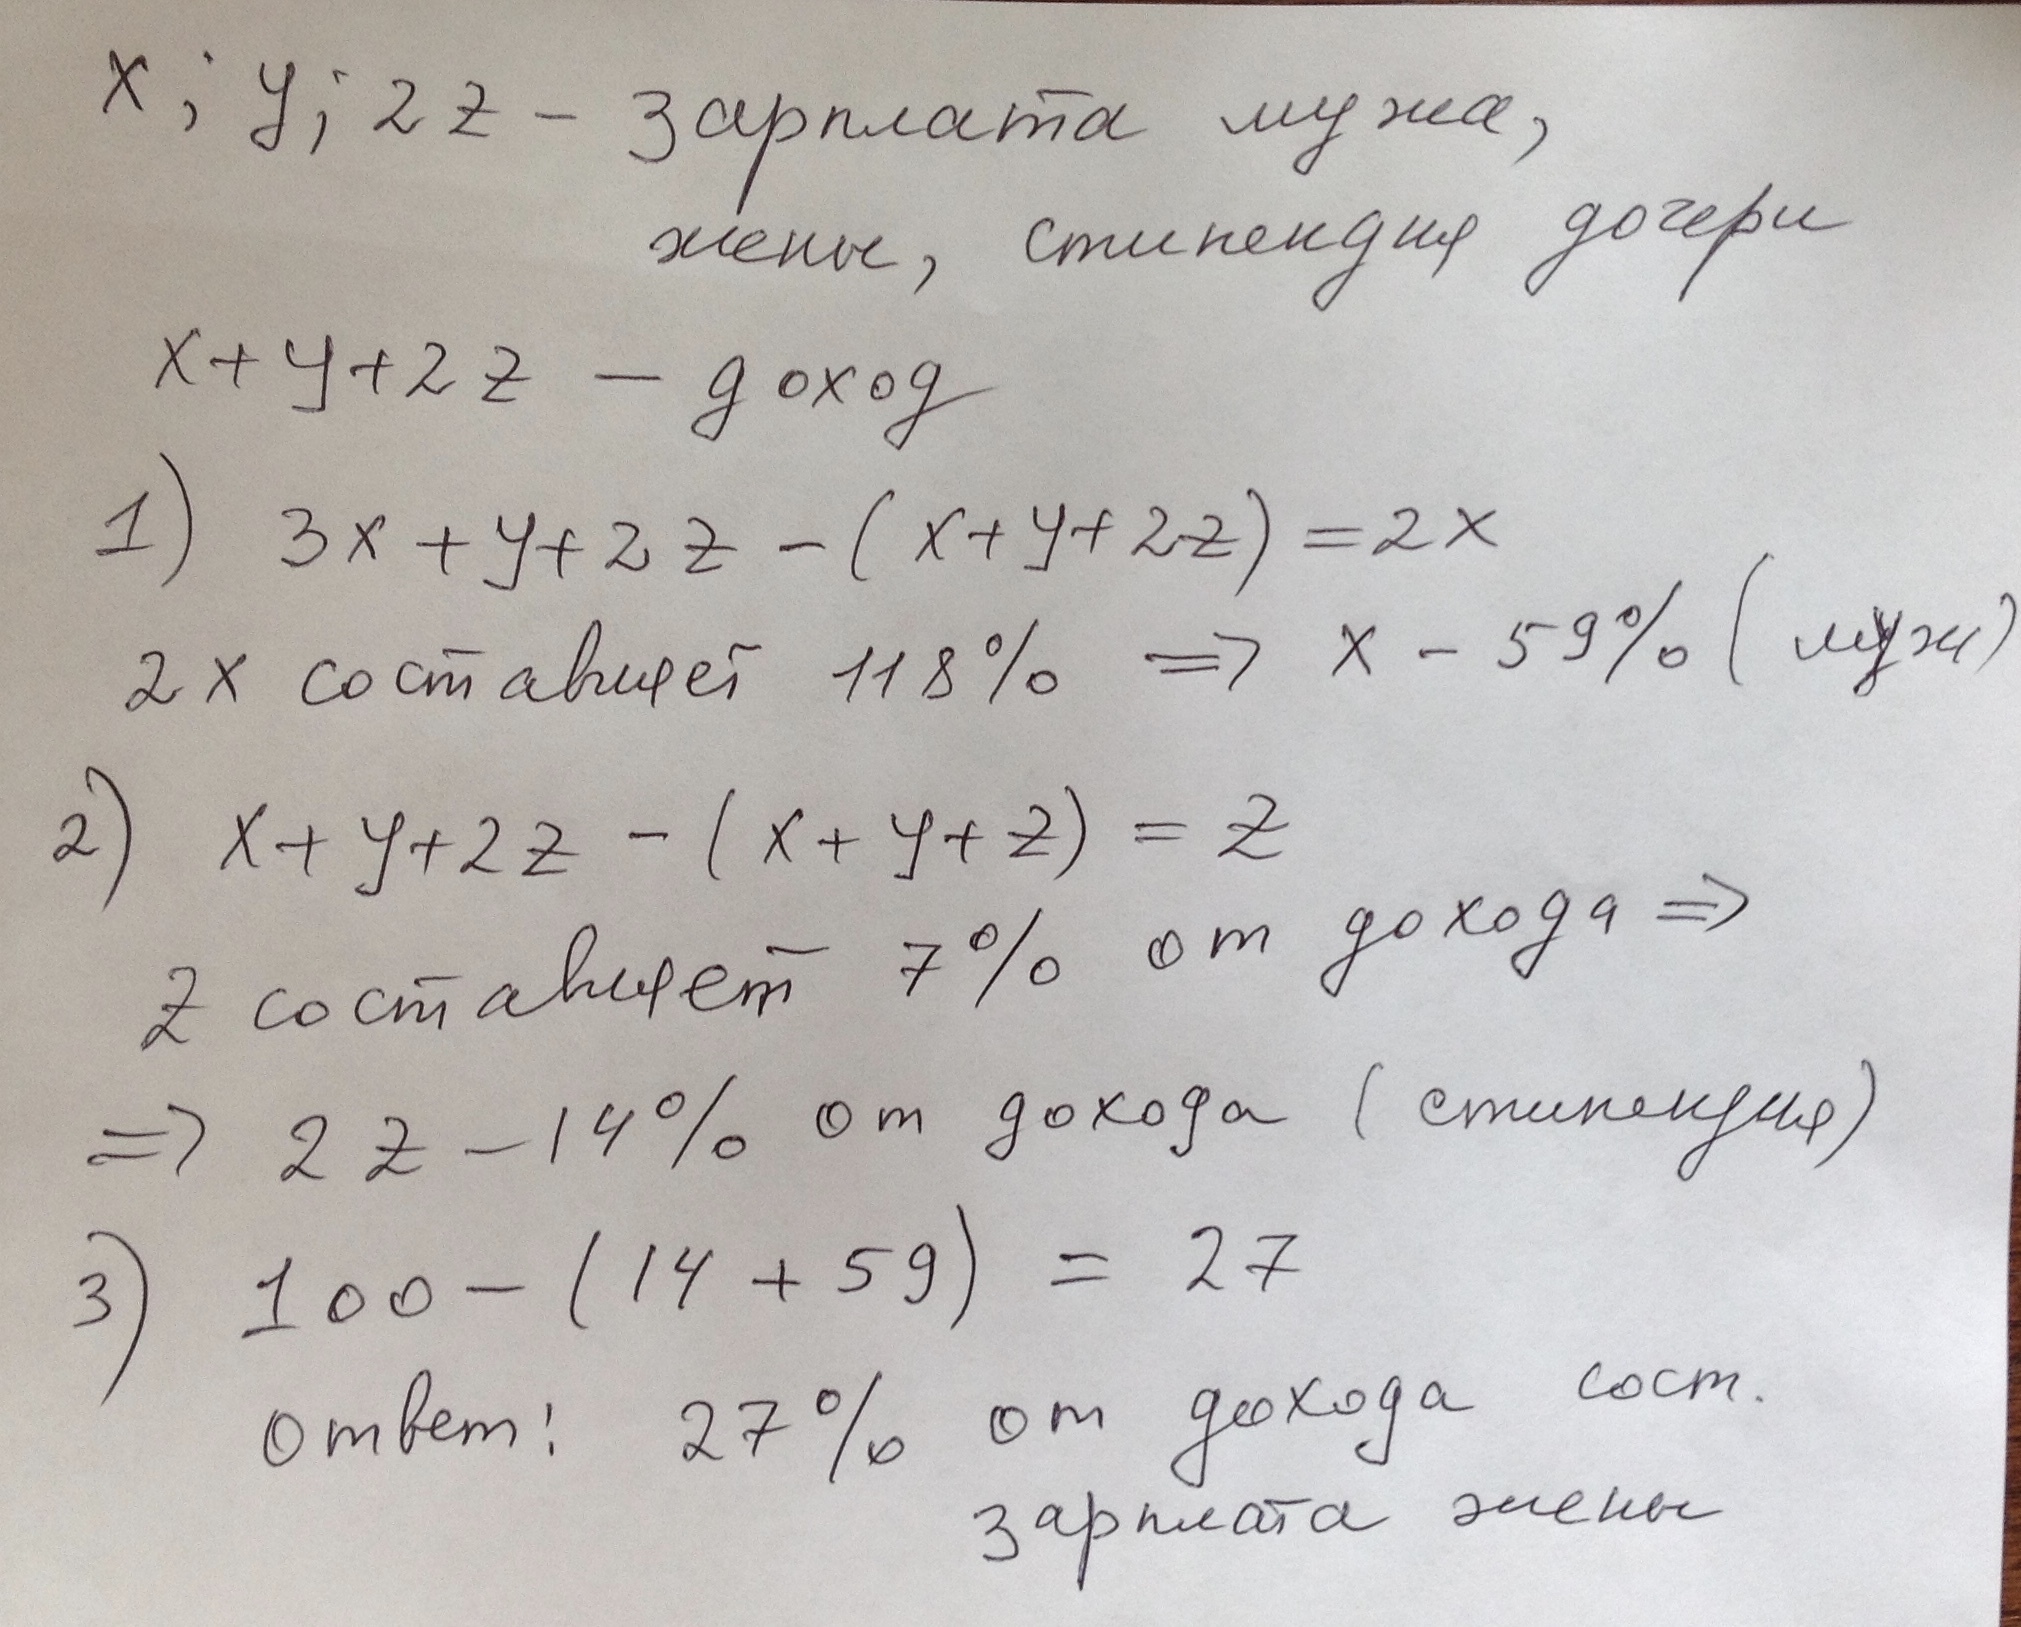 x; y; 2z – зарплата мужа,
жены, стипендия дочери
x+y+2z – доход
1) 3x+y+2z–(x+y+2z)=2x
2x составляет 118% => x – 59% (муж)
2) x+y+2z–(x+y+z)=z
z составляет 7% от дохода =>
=> 2z – 14% от дохода (стипендия)
3) 100–(14+59)=27
ответ: 27% от дохода сост.
зарплата жены